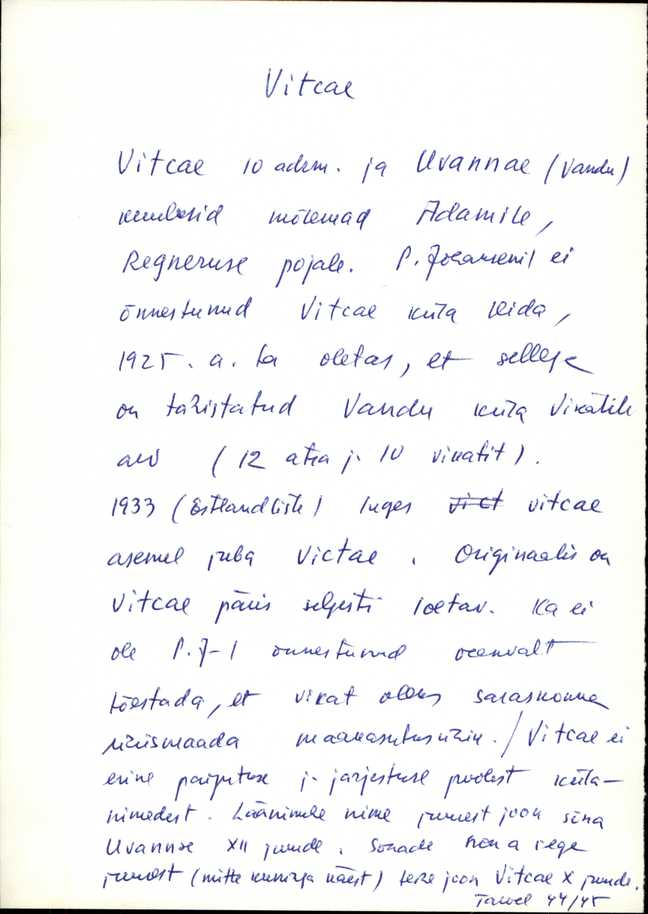 Vitcae
Vitcae 10 adrm. ja Uvannae (Vandu)
kuulusid mõlemad Adamile,
Regneruse pojale. P. Johansenil ei
õnnestunud Vitcae küla leida,
1925. a. ta oletas, et sellega
on tähistatud Vandu küla vikatite
arv (12 atra j. 10 vikatit).
1933 (Estlandliste) luges vict vitcae
asemel juba Victae. Originaalis on
Vitcae päris selgesti loetav. Ka ei
ole P. J-l õnnestunud veenvalt
tõestada, et vikat oleks saraskonna
ühismaada maakasutusühik. / Vitcae ei
erine paigutuse j. järjestuse poolest küla-
nimedest. Läänimehe nime juurest joon sõna
Uvannae XII juurde. Sõnade non a rege
juurest (mitte kuninga käest) teine joon Vitcae X juurde.
Tawel 44/45